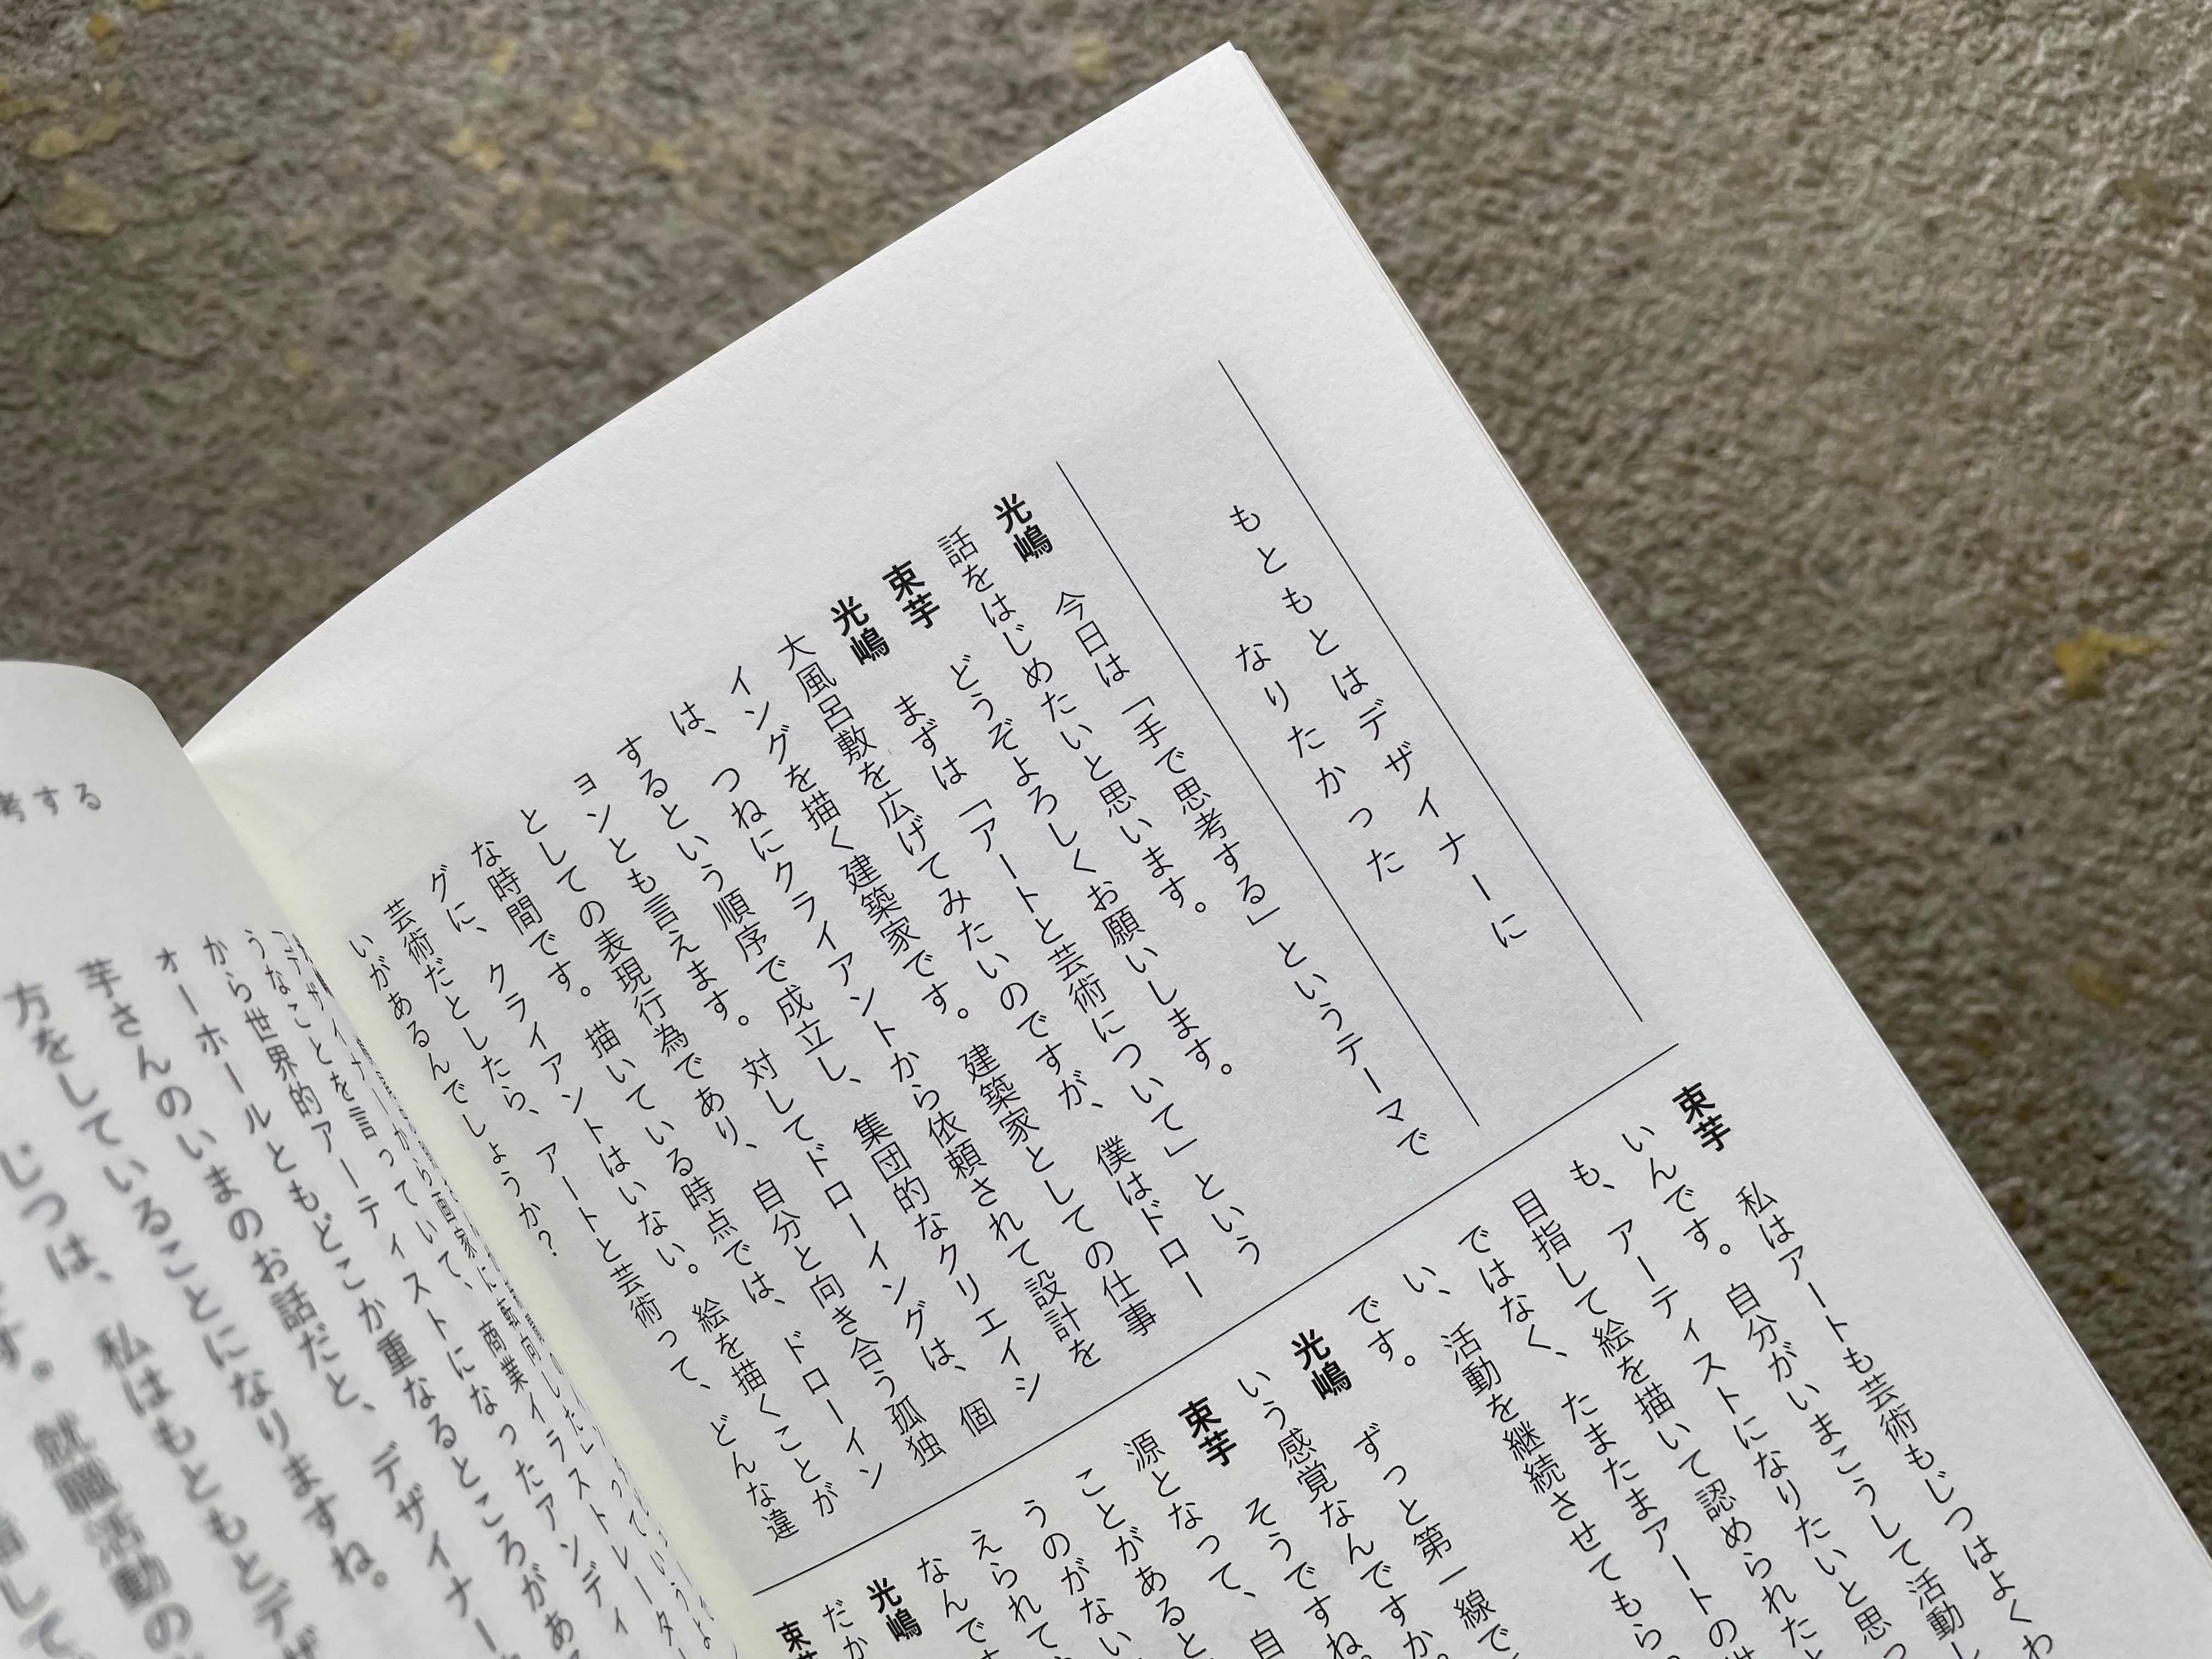 もともとはデザイナーに
なりたかった
光嶋　今日は「手で思考する」というテーマで
話をはじめたいと思います。
束芋　どうぞよろしくお願いします。
光嶋　まずは「アートと芸術について」という
大風呂敷を広げてみたいのですが、僕はドロー
イングを描く建築家です。建築家としての仕事
は、つねにクライアントから依頼されて設計を
するという順序で成立し、集団的なクリエイシ
ョンとも言えます。対してドローイングは、個
としての表現行為であり、自分と向き合う孤独
な時間です。描いている時点では、ドローイン
グに、クライアントはいない。絵を描くことが
芸術だとしたら、アートと芸術って、どんな違
いがあるんでしょうか？
束芋　私はアートも芸術もじつはよくわ
いんです。自分がいまこうして活動し
も、アーティストになりたいと思っ
目指して絵を描いて認められたと
ではなく、たまたまアートの
い、活動を継続させてもら
です。
光嶋　ずっと第一線で
いう感覚なんですか。
束芋　そうですね。
源となって、自
ことがあると
うのがない
えられて
なんです
光嶋
だか
束芋
考する
うなことを言っていて、商業イラストレーター
から世界的アーティストになったアンディ
オーホールともどこか重なるところがあ
芋さんのいまのお話だと、デザイナー
方をしていることになりますね。
じつは、私はもともとデザ
す。就職活動の
指して